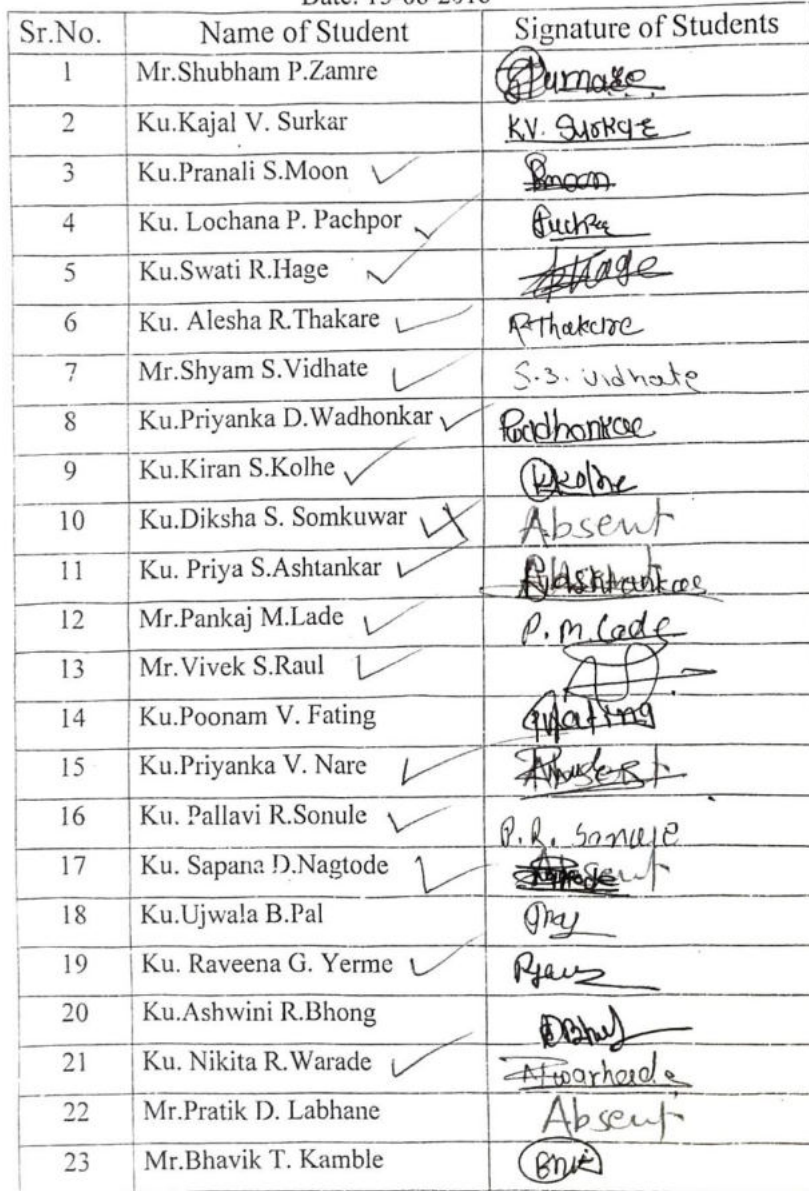 Date: 15-08-2018
Sr.No. Name of Student Signature of Students
1 Mr.Shubham P.Zamre
2 Ku.Kajal V. Surkar K.V. Surkar
3 Ku.Pranali S.Moon Pmoon
4 Ku. Lochana P. Pachpor
5 Ku.Swati R.Hage Hage
6 Ku. Alesha R.Thakare AThakare
7 Mr.Shyam S.Vidhate S.S. Vidhate
8 Ku.Priyanka D.Wadhonkar
9 Ku.Kiran S.Kolhe Kkolhe
10 Ku.Diksha S. Somkuwar Absent
11 Ku. Priya S.Ashtankar
12 Mr.Pankaj M.Lade P.M.Lade
13 Mr.Vivek S.Raul
14 Ku.Poonam V. Fating
15 Ku.Priyanka V. Nare
16 Ku. Pallavi R.Sonule P.R. Sonule
17 Ku. Sapana D.Nagtode
18 Ku.Ujwala B.Pal
19 Ku. Raveena G. Yerme
20 Ku.Ashwini R.Bhong
21 Ku. Nikita R.Warade
22 Mr.Pratik D. Labhane Absent
23 Mr.Bhavik T. Kamble